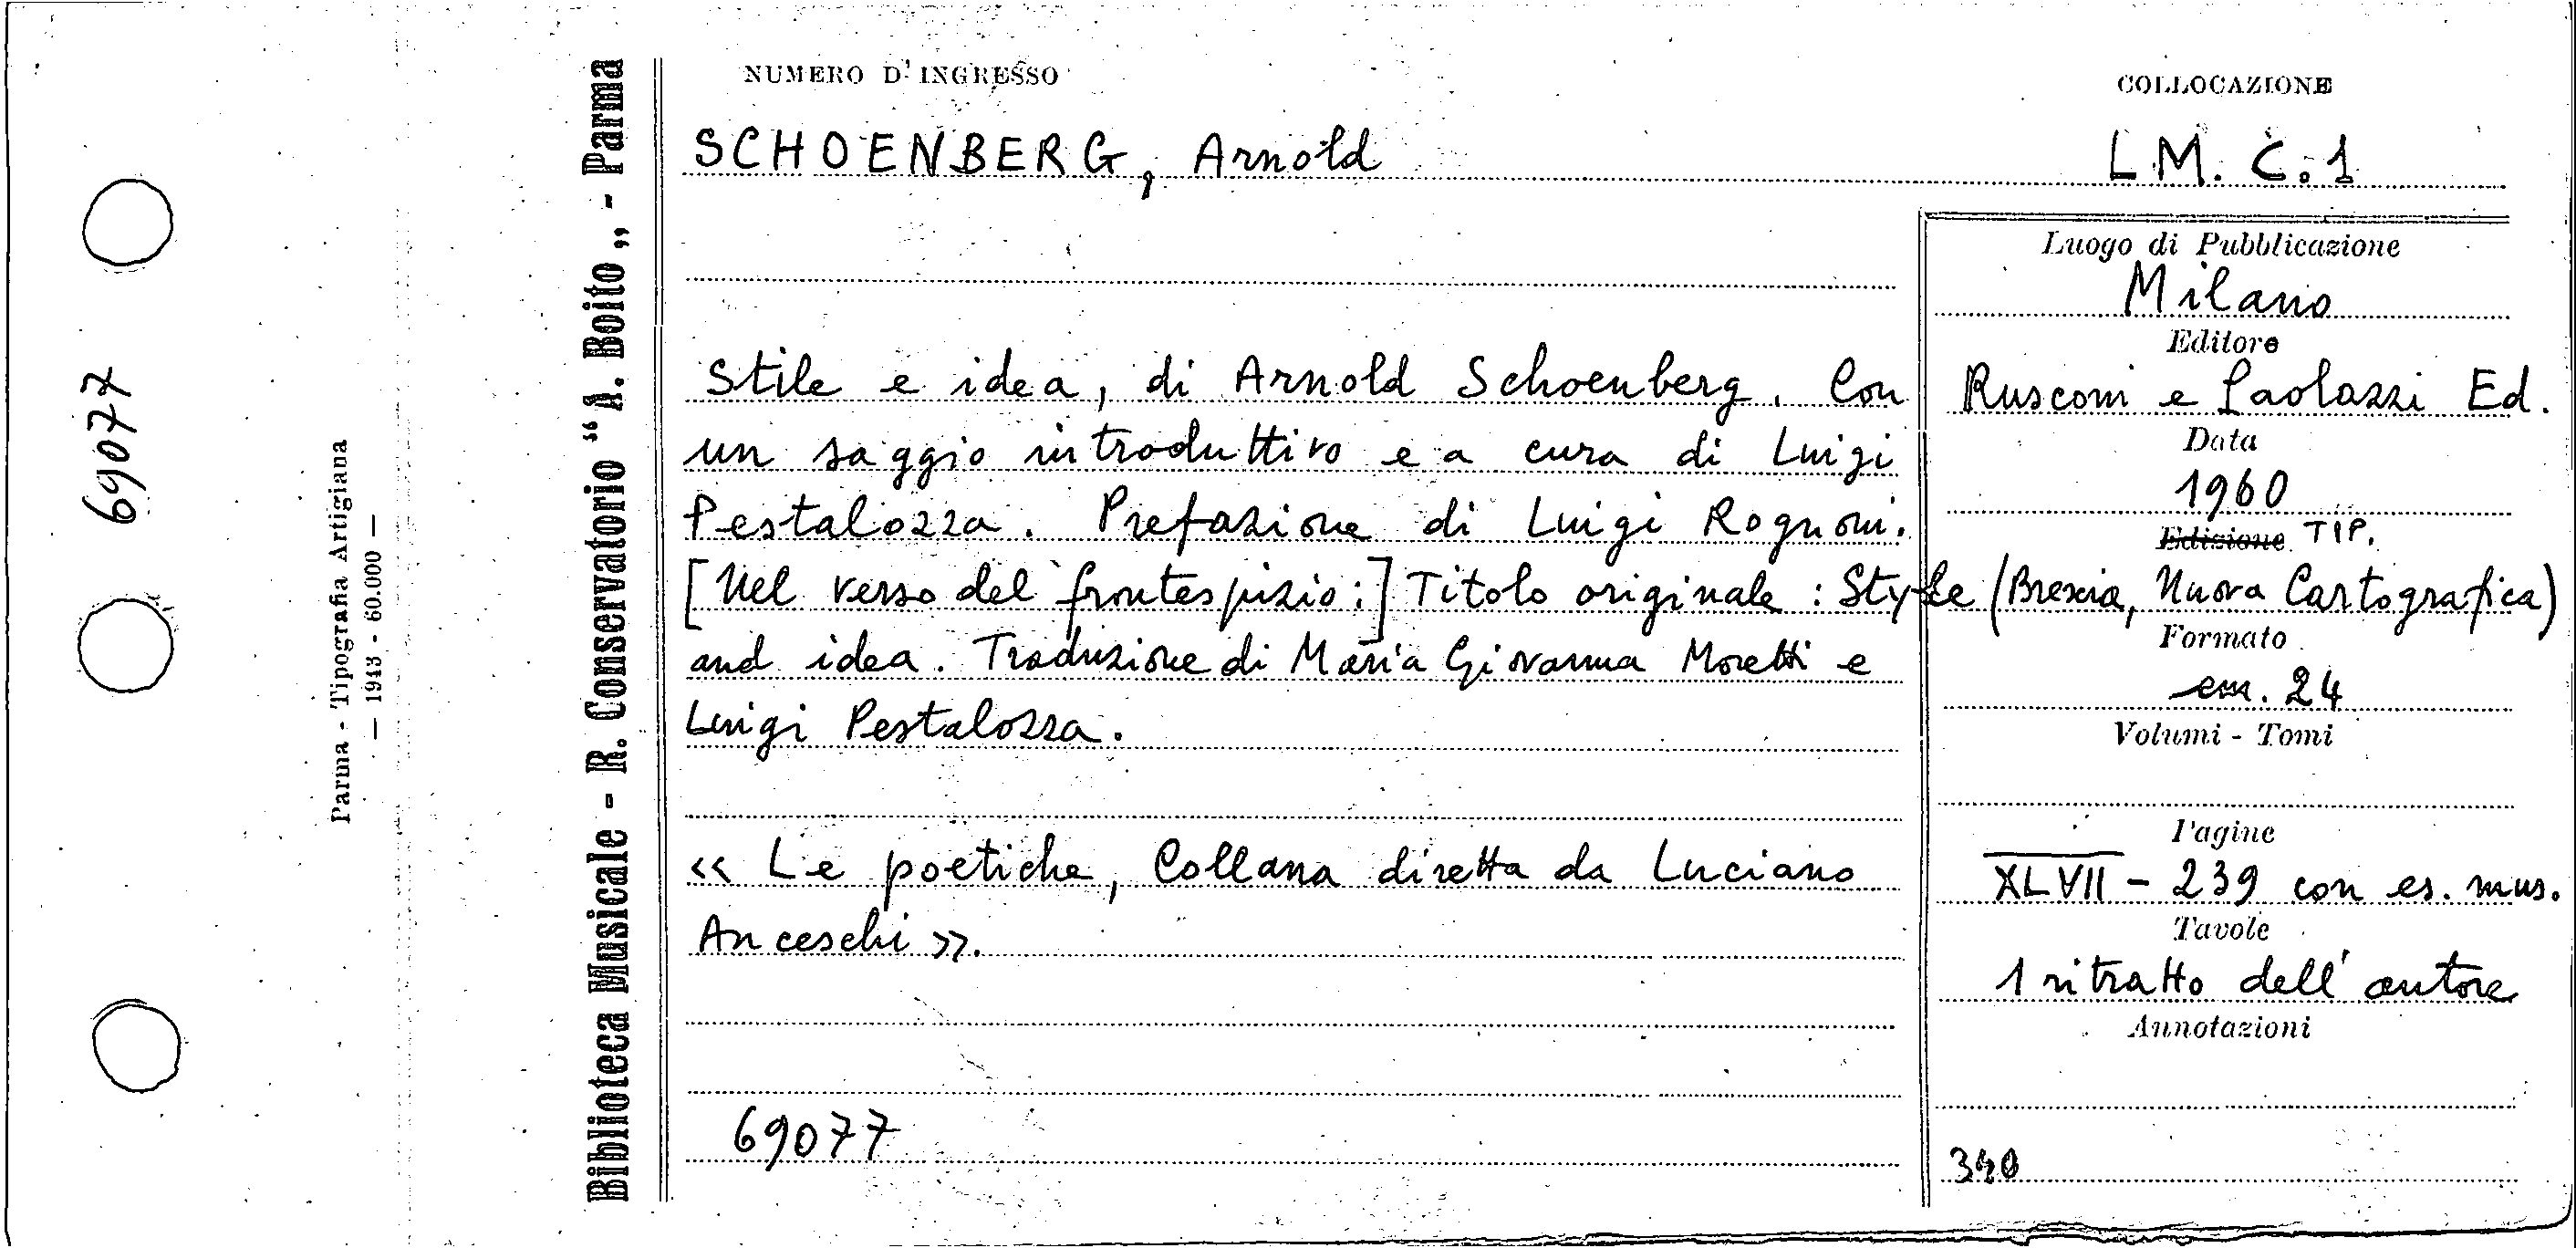 69077
Parma - Tipografia Artigiana
— 1943 - 60.000 —
Biblioteca Musicale - R. Conservatorio “A. Boito„ - Parma
NUMERO D'INGRESSO
COLLOCAZIONE
SCHOENBERG, Arnold
L.M. C.1
Stile e idea, di Arnold Schoenberg. Con
un saggio introduttivo e a cura di Luigi
Pestalozza. Prefazione di Luigi Rognoni.
[Nel verso del frontespizio:] Titolo originale: Style
and idea. Traduzione di Maria Giovanna Moretti e
Luigi Pestalozza.
« Le poetiche, Collana diretta da Luciano
Anceschi ».
69077
Luogo di Pubblicazione
Milano
Editore
Rusconi e Paolazzi Ed.
Data
1960
Edizione TIP.
(Brescia, Nuova Cartografica)
Formato
cm. 24
Volumi - Tomi
Pagine
XLVII - 239 con es. mus.
Tavole
1 ritratto dell'autore
Annotazioni